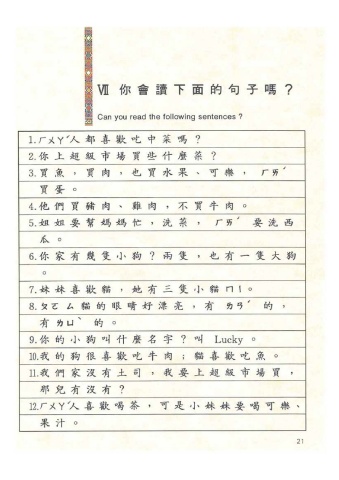 Ⅶ 你會讀下面的句子嗎？
Can you read the following sentences ?
1.ㄏㄨㄚˊ人都喜歡吃中菜嗎？
2.你上超級市場買些什麼菜？
3.買魚，買肉，也買水果、可樂，ㄏㄞˊ
買蛋。
4.他們買豬肉、雞肉，不買牛肉。
5.姐姐要幫媽媽忙，洗菜，ㄏㄞˊ要洗西
瓜。
6.你家有幾隻小狗？兩隻，也有一隻大狗
。
7.妹妹喜歡貓，她有三隻小貓ㄇㄧ。
8.ㄆㄛㄙ貓的眼睛好漂亮，有ㄌㄢˊ的，
有ㄌㄩˋ的。
9.你的小狗叫什麼名字？叫 Lucky。
10.我的狗很喜歡吃牛肉；貓喜歡吃魚。
11.我們家沒有土司，我要上超級市場買，
那兒有沒有？
12.ㄏㄨㄚˊ人喜歡喝茶，可是小妹妹要喝可樂、
果汁。
21